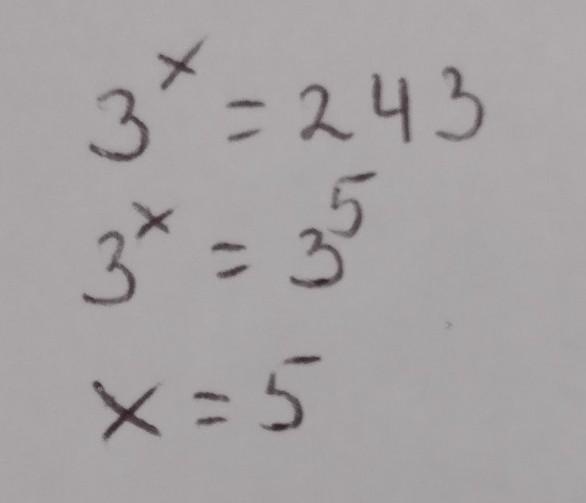 3ˣ = 243
3ˣ = 3⁵
x = 5